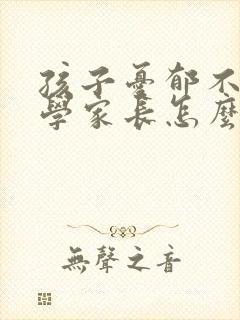 孩子憂郁不
學家長怎麽
無聲之音